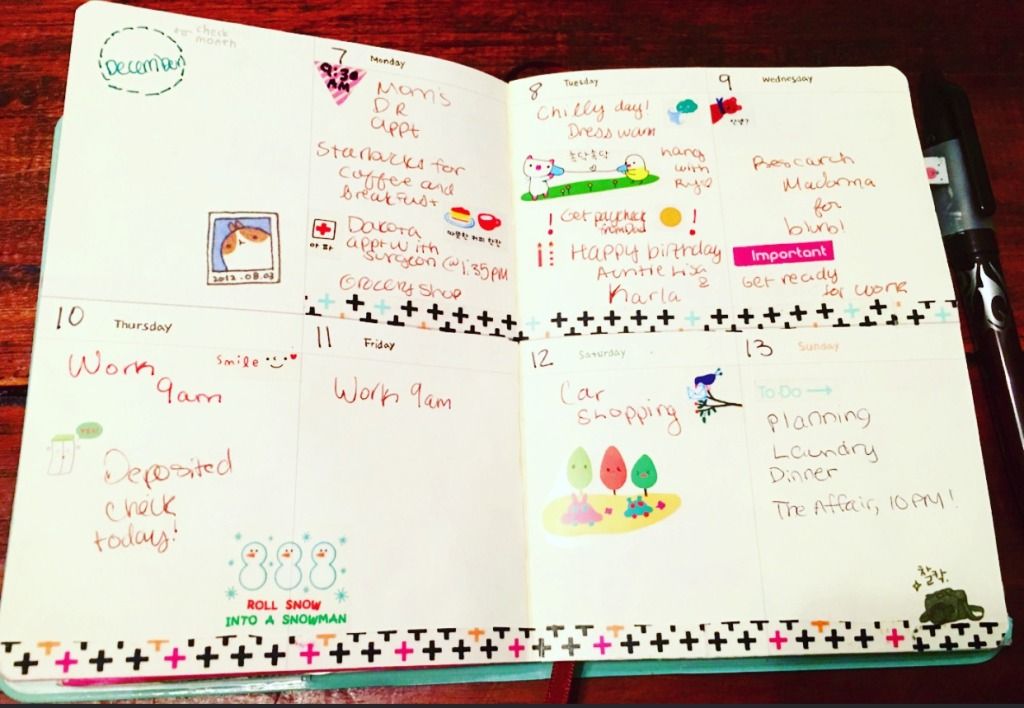 December
check
month
2012.08.03
7 Monday
9:30
AM
Mom's
DR
appt
Starbucks for
coffee and
breakfast
따뜻한 커피 한잔
아파
Dakota
appt with
surgeon @ 1:35 PM
Grocery Shop
8 Tuesday
Chilly day!
Dress warm
속닥속닥
hang
with
! Get paycheck
!
Happy birthday
Auntie Lisa
&
Karla
9 Wednesday
안녕?
Research
Madorma
for
blurb!
Important
Get ready
for work
10 Thursday
Work
9am
Smile
YES!
Deposited
check
today!
ROLL SNOW
INTO A SNOWMAN
11 Friday
Work 9am
12 Saturday
Car
Shopping
13 Sunday
To Do →
Planning
Laundry
Dinner
The Affair, 10 PM!
찰칵